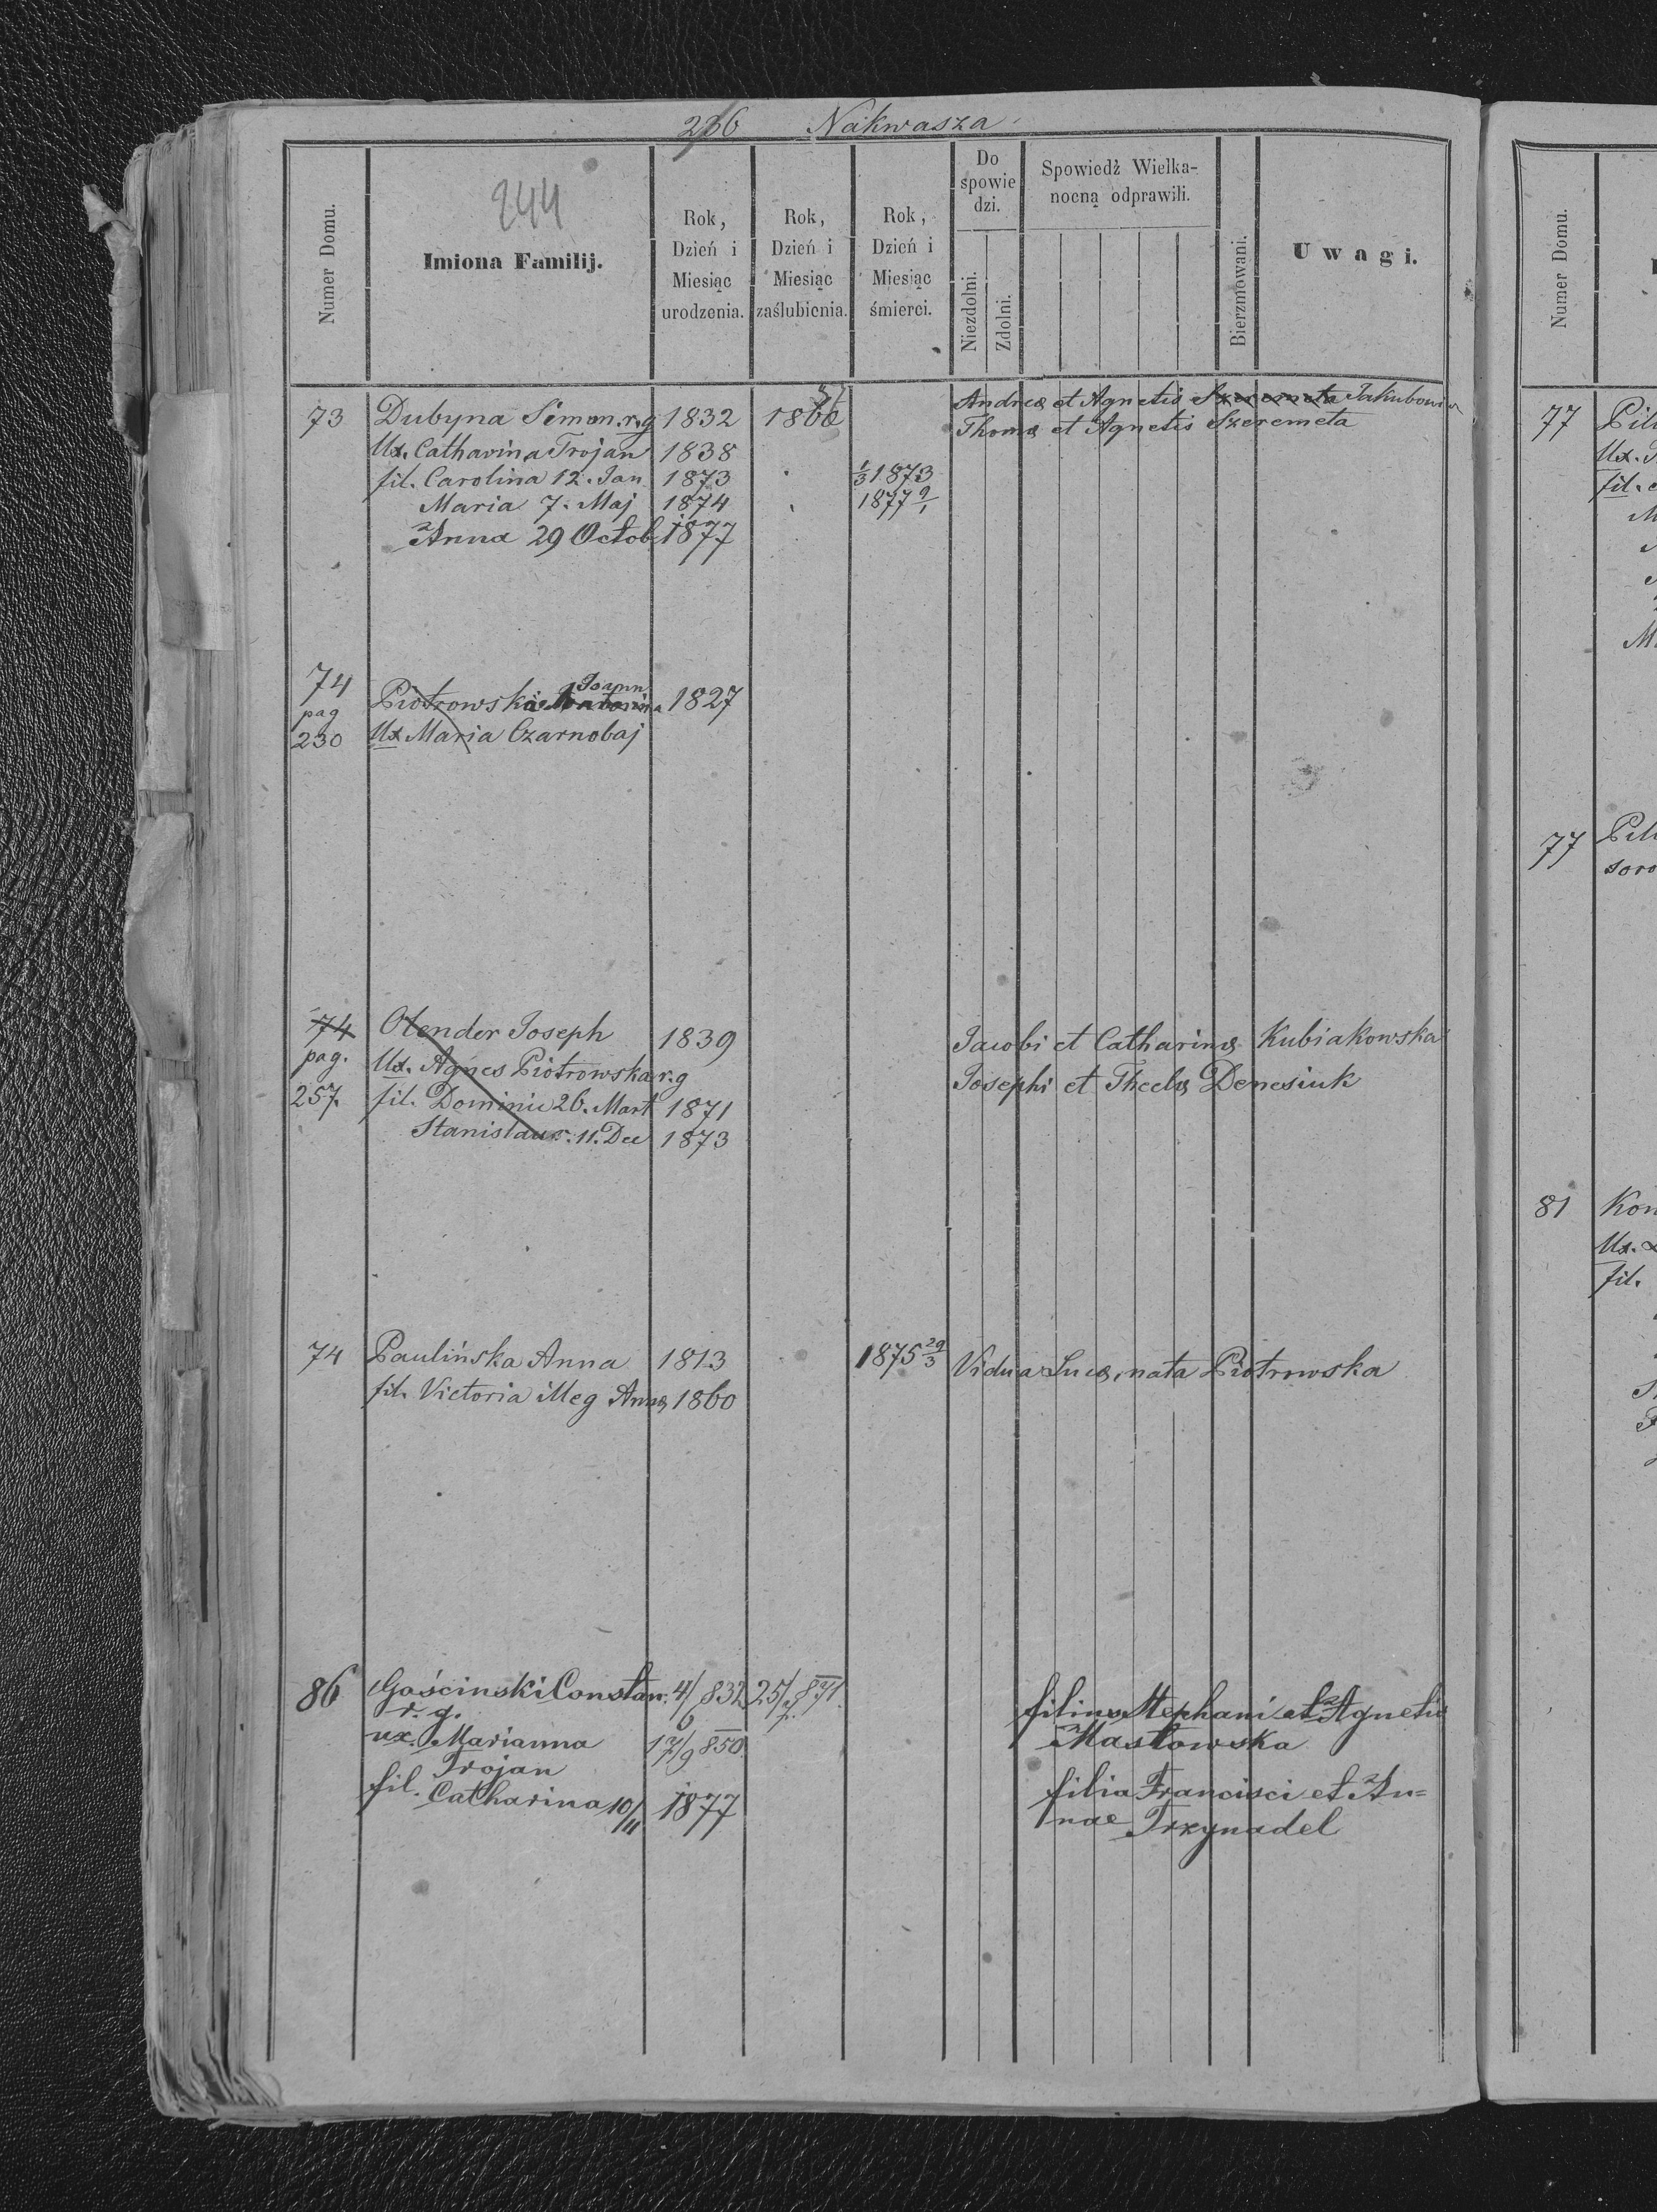 236 Nakwasza
244
Numer Domu.
Imiona Familij.
Rok, Dzień i Miesiąc urodzenia.
Rok, Dzień i Miesiąc zaślubienia.
Rok, Dzień i Miesiąc śmierci.
Do spowiedzi.
Niezdolni.
Zdolni.
Spowiedź Wielkanocną odprawili.
Bierzmowani.
Uwagi.
73 Dubyna Simon. r.g 1832 1866 Andreæ et Agnetis Szeremeta Jakubow
Ux. Catharina Trojan 1838 Thomæ et Agnetis Szeremeta
fil. Carolina 12. Jan 1873 1/3 1873
Maria 7. Maj 1874 1877 9/1
Anna 29 Octob 1877
74 Piotrowski Joann. 1827
pag 230 Ux Maria Czarnobaj
74 Olender Joseph 1839 Jacobi et Catharinæ Kubiakowska
pag. Ux. Agnes Piotrowska r.g Josephi et Theclæ Denesiuk
257. fil. Dominic 26. Mart 1871
Stanislaus. 11. Dec 1873
74 Paulińska Anna 1813 1875 29/3 Vidua Lucæ, nata Piotrowska
fil. Victoria illeg Annæ 1860
86 Gościnski Constan. 4/6 832 25/7 871. filius Stephani et Agnetis
r. g. Mastowska
ux. Marianna 17/9 850
Trojan filia Francisci et An=
fil. Catharina 10/11 1877 nae Trzynadel
Numer Domu.
77
Ux.
fil.
77
81 Kon
Ux.
fil.